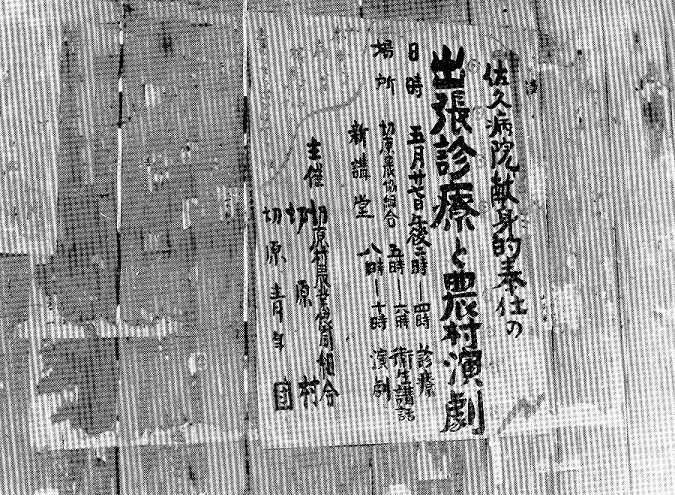 佐久病院献身的奉仕の
出張診療と農村演劇
日時 五月廿七日午後二時―四時 診療
五時―六時 衛生講話
八時―十時 演劇
場所 切原農協組合
新講堂
主催 切原村農業協同組合
切原村
切原青年団